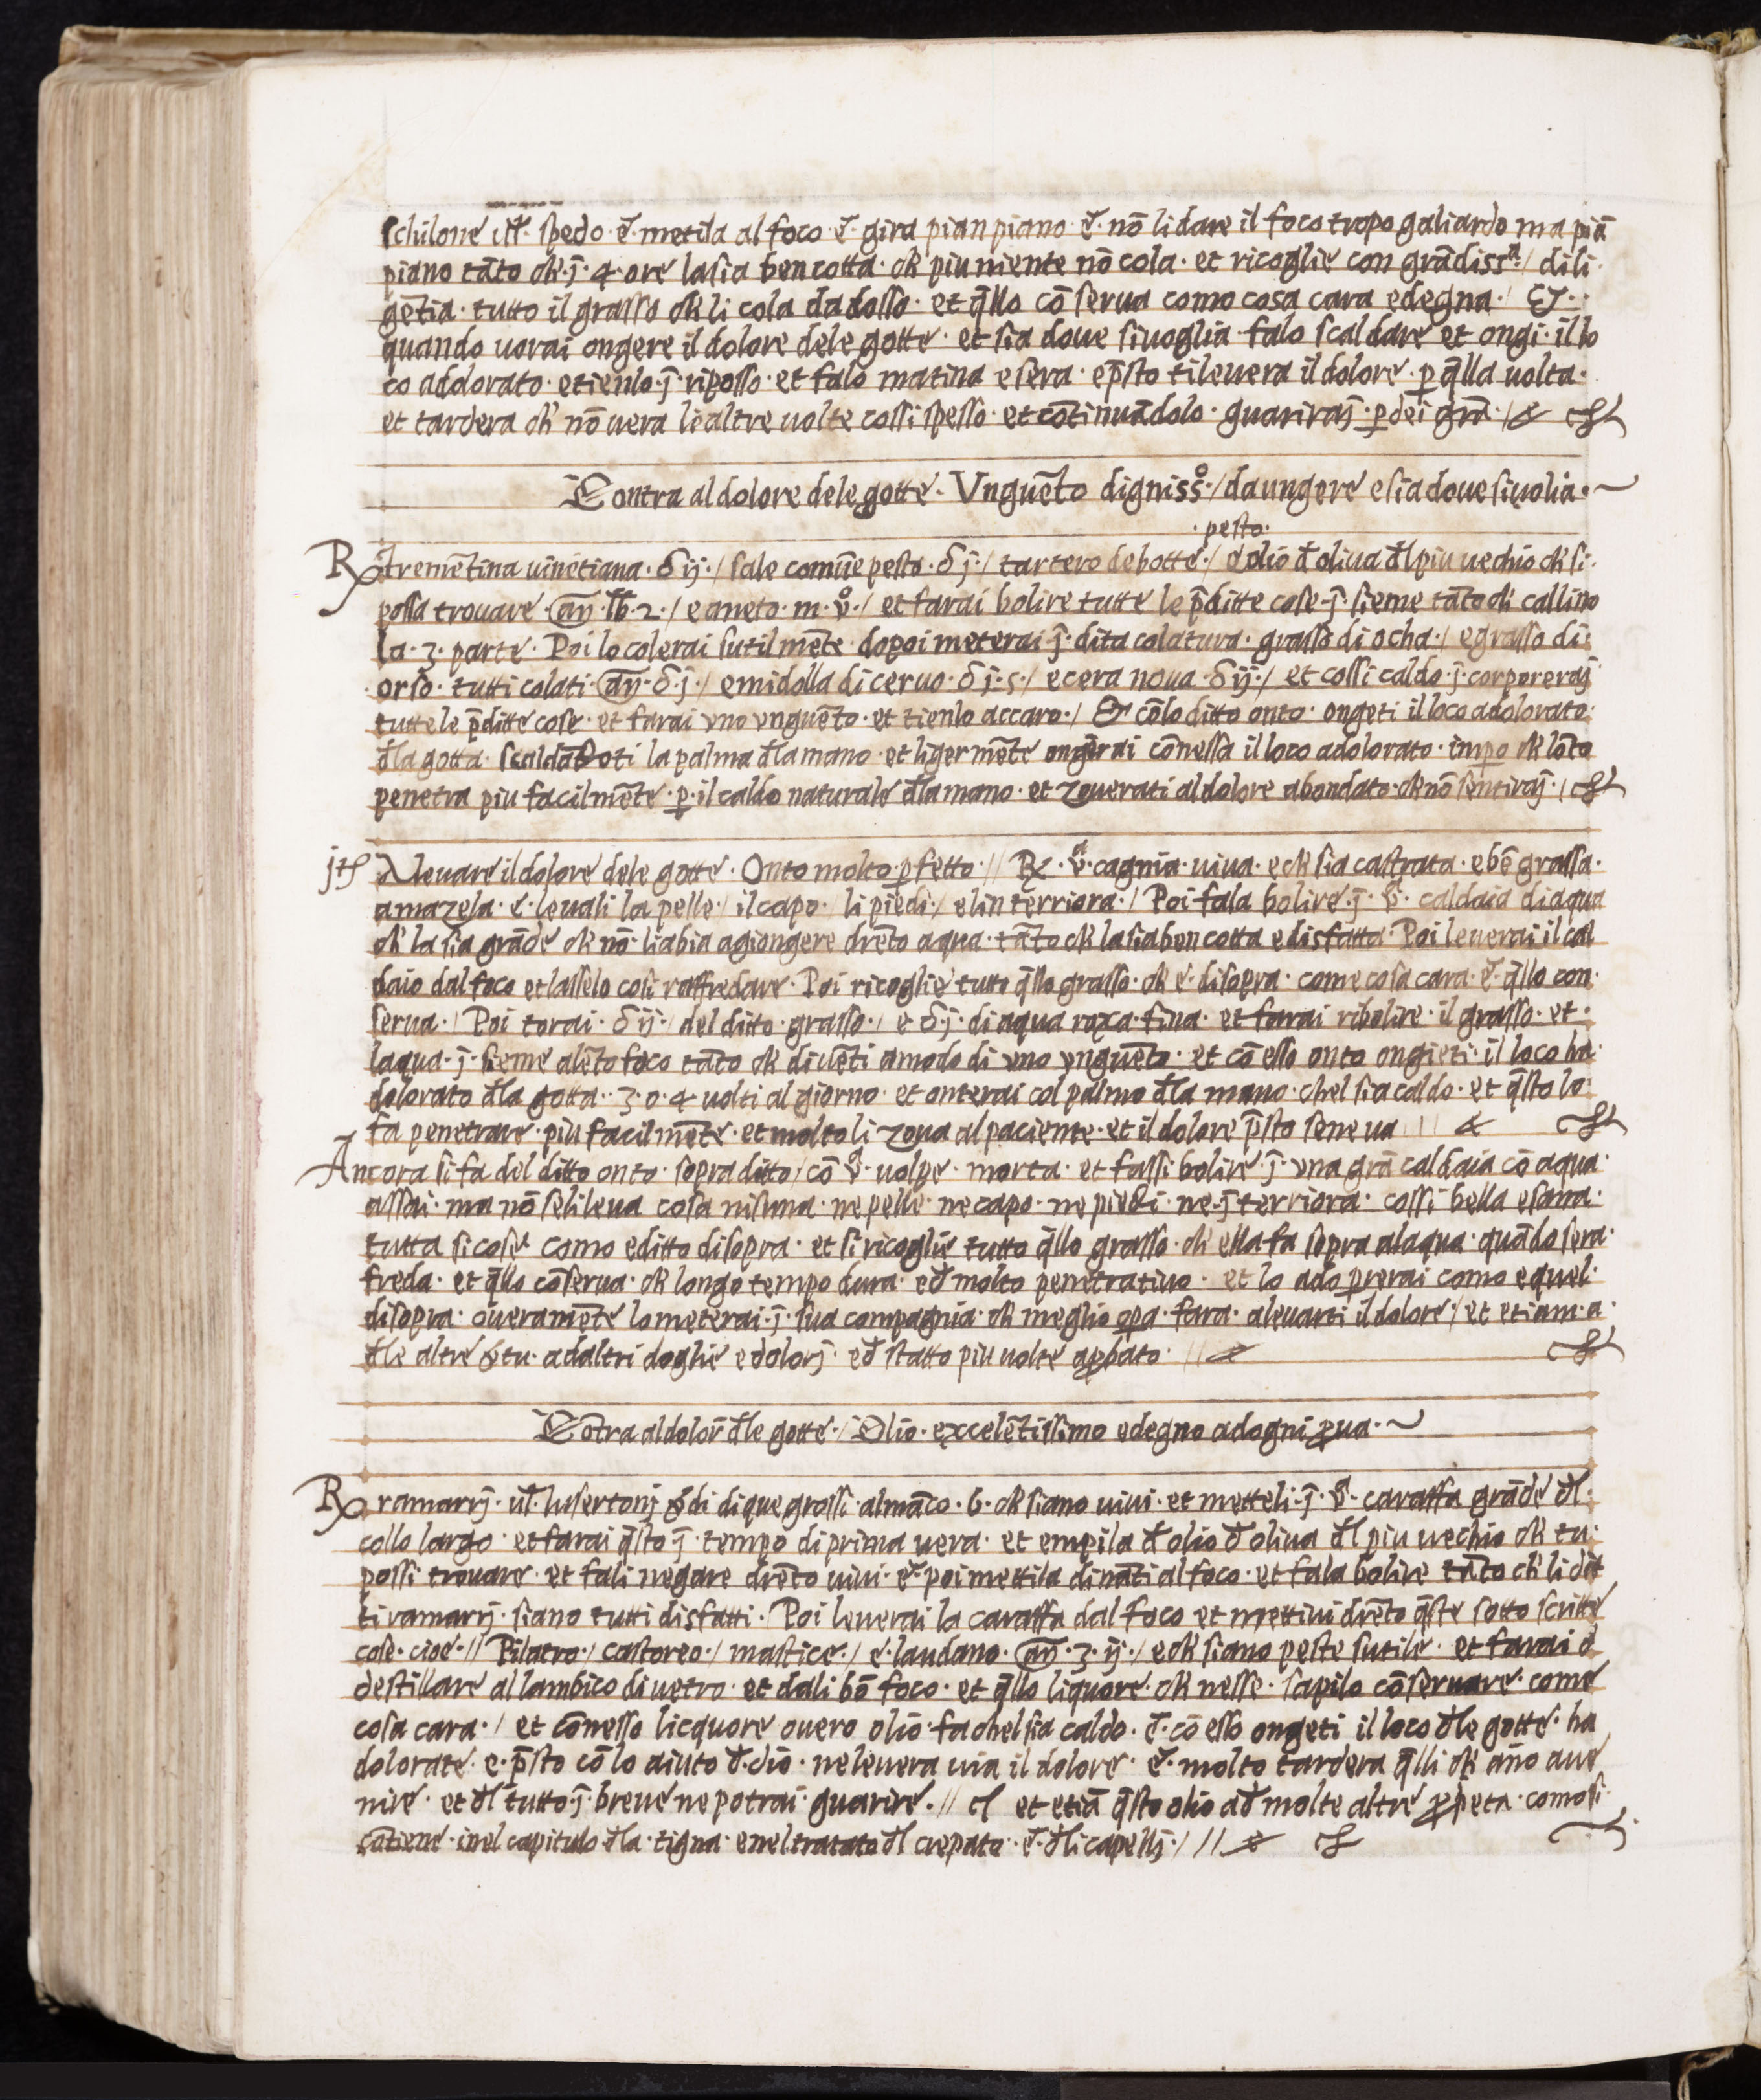 schilone ut̃. spedo · et̃· metila al foco · et̃· gira pian piano · et̃· nō li dare il foco tropo galiardo ma piā
piano tāto ch̃·j̄· 4· ore la sia ben cotta · ch̃ piu niente nō cola · et ricoglie con grādissᵃ·/ dili·
gētia· tutto il grasso ch̃ li cola dadosso· et q̄llo cō serua como cosa cara e degna·/ &·
quando uorai ongere il dolore dele gotte· et sia doue si uoglia falo scaldare et ongi· il lo
co addorato· et ienlo·j̄· riposso· et falo matina e sera· ep̄sto ti leuera il dolore· p̱ q̄lla uolta·
et tardera ch̃ nō uera li altre uolte cossi spesso· et cōtinuādolo· guariraj· p̱ dei grā·/
Contra al dolore dele gotte· Vnguēto digniss̊·/ da ungere e sia doue si uolia·~
· pesto·
℞ tremētina uinetiana· δ ij·/ sale comūe pesto· δ j·/ tartero de botte·/ e olio đ oliua đl piu uechio ch̃ si·
possa trouare· añ· ℔· 2·/ e aneto· m· v̊·/ et farai bolire tutte le p̄ditte cose·j̄· sieme tāto ch̃ callino
la· 3· parte· Poi lo colerai sutilmēte· dopoi meterai·j̄· dita colatura· grasso di ocha·/ e grasso di·
orso· tutti colati· añ· δ· j·/ e midolla di ceruo· δ j· s·/ e cera noua· δ ij·/ et cossi caldo·j̄· corporeraj
tutte le p̄ditte cose· et farai vno vnguēto· et tienlo accaro·/ & cōlo ditto onto· ongeti il loco adolorato·
đla gotta· scaldādoti la palma đla mano· et ligermēte ongerai cōnessa il loco adolorato· impo ch̃ lōto
penetra piu facilmēte· p̱· il caldo naturale đla mano· et zouerati al dolore abondato· ch̃ nō sentiraj·/
jtem A leuare il dolore dele gotte· Onto molto p̱fetto·// ℞· vᵃ· cagnia· uiua· e ch̃ sia castrata· e bē grassa·
amazela· e· leuali la pelle·/ il capo·/ li piedi·/ e lin terriora·/ Poi fala bolire·j̄· vᵃ· caldaia di aqua
ch̃ la sia grāde ch̃ nō· li abia agiongere drēto aqua· tāto ch̃ la sia ben cotta e disfatta· Poi leuerai il cal
daio dal foco et lasselo cosi raffredare· Poi ricoglie tutto q̄llo grasso· ch̃ e· disopra· come cosa cara· et̃· q̄llo con·
serua·/ Poi torai· δ ij·/ del ditto· grasso·/ e δ·j· di aqua roxa fina· et farai ribolire· il grasso· et·
laqua·j̄· sieme alēto foco tāto ch̃ diuēti amodo di vno vnguēto· et cō esso onto ongieti· il loco ha·
dolorato đla gotta·· 3· o· 4 uolti al giorno· et onterai col palmo đla mano· chel sia caldo· et q̄sto lo·
fa penetrare· piu facilmēte· et molto li zoua al paciente· et il dolore p̄sto sene ua //
Ancora si fa del ditto onto· sopra ditto/ cō vᵃ· uolpe· morta· et fassi bolire·j̄· vna grā caldaia cō aqua·
assai· ma nō seli leua cosa nisuna· ne pelle· ne capo· ne piedi· ne·j̄ terriora· cossi bella e sana·
tutta si cose como e ditto disopra· et si ricoglie tutto q̄llo grasso· ch̃ ella fa sopra alaqua· quādo sera·
freda· et q̄llo cōserua· ch̃ longo tempo dura· eđ molto penetratiuo· et lo adoprerai como e quel·
disopra· oueramēte lo meterai·j̄· sua compagnia· ch̃ meglio opa fara· aleuarti il dolore·/ et etiam· a·
đle altre adaltri doglie e dolorj· eđ statto piu uolte ap̱bato· //
Cōtra al dolor đle gotte·/ Olio· excelētissimo e degno adogni p̱ua·~
℞ ramarrj· ut̃· lusertonj di que grossi· almāco· 6· ch̃ siano uiui· et metteli·j̄· vᵃ· caraffa grāde đl·
collo largo· et farai q̄sto·j̄· tempo di prima uera· et empila đ olio đ oliua đl piu uechio ch̃ tu·
possi trouare· et fali negare drēto uiui· et̃· poi mettila dināti al foco· et fala bolire tāto ch̃ li dit
ti ramarrj· siano tutti disfatti· Poi leuerai la caraffa dal foco et mettiui drēto q̄ste sotto scritte
cose· cioe·// Pilatro·/ castoreo·/ mastice·/ e· laudano· añ· 3· ij·/ e ch̃ siano peste sutile· et farai
destillare al lambico di uetro· et dali bō foco· et q̄llo liquore· ch̃ nesse· sapilo cōseruare· come
cosa cara·/ et cōnesso licquore ouero olio· fa chel sia caldo· et̃· cō esso ongeti il loco đle gotte· ha
dolorate· e· p̄sto cō lo aiuto đ· dio· ne leuera uia il dolore· et̃· molto tardera q̄lli ch̃ ano aue
nire· et đl tutto·j̄· breue ne potrai· guarire·// et etiā q̄sto olio ađ molte altre p̱peta· como si·
cōtiene· inel capitulo đla· tigna· e nel tratato đl crepato· et̃· đli capellj·/ //